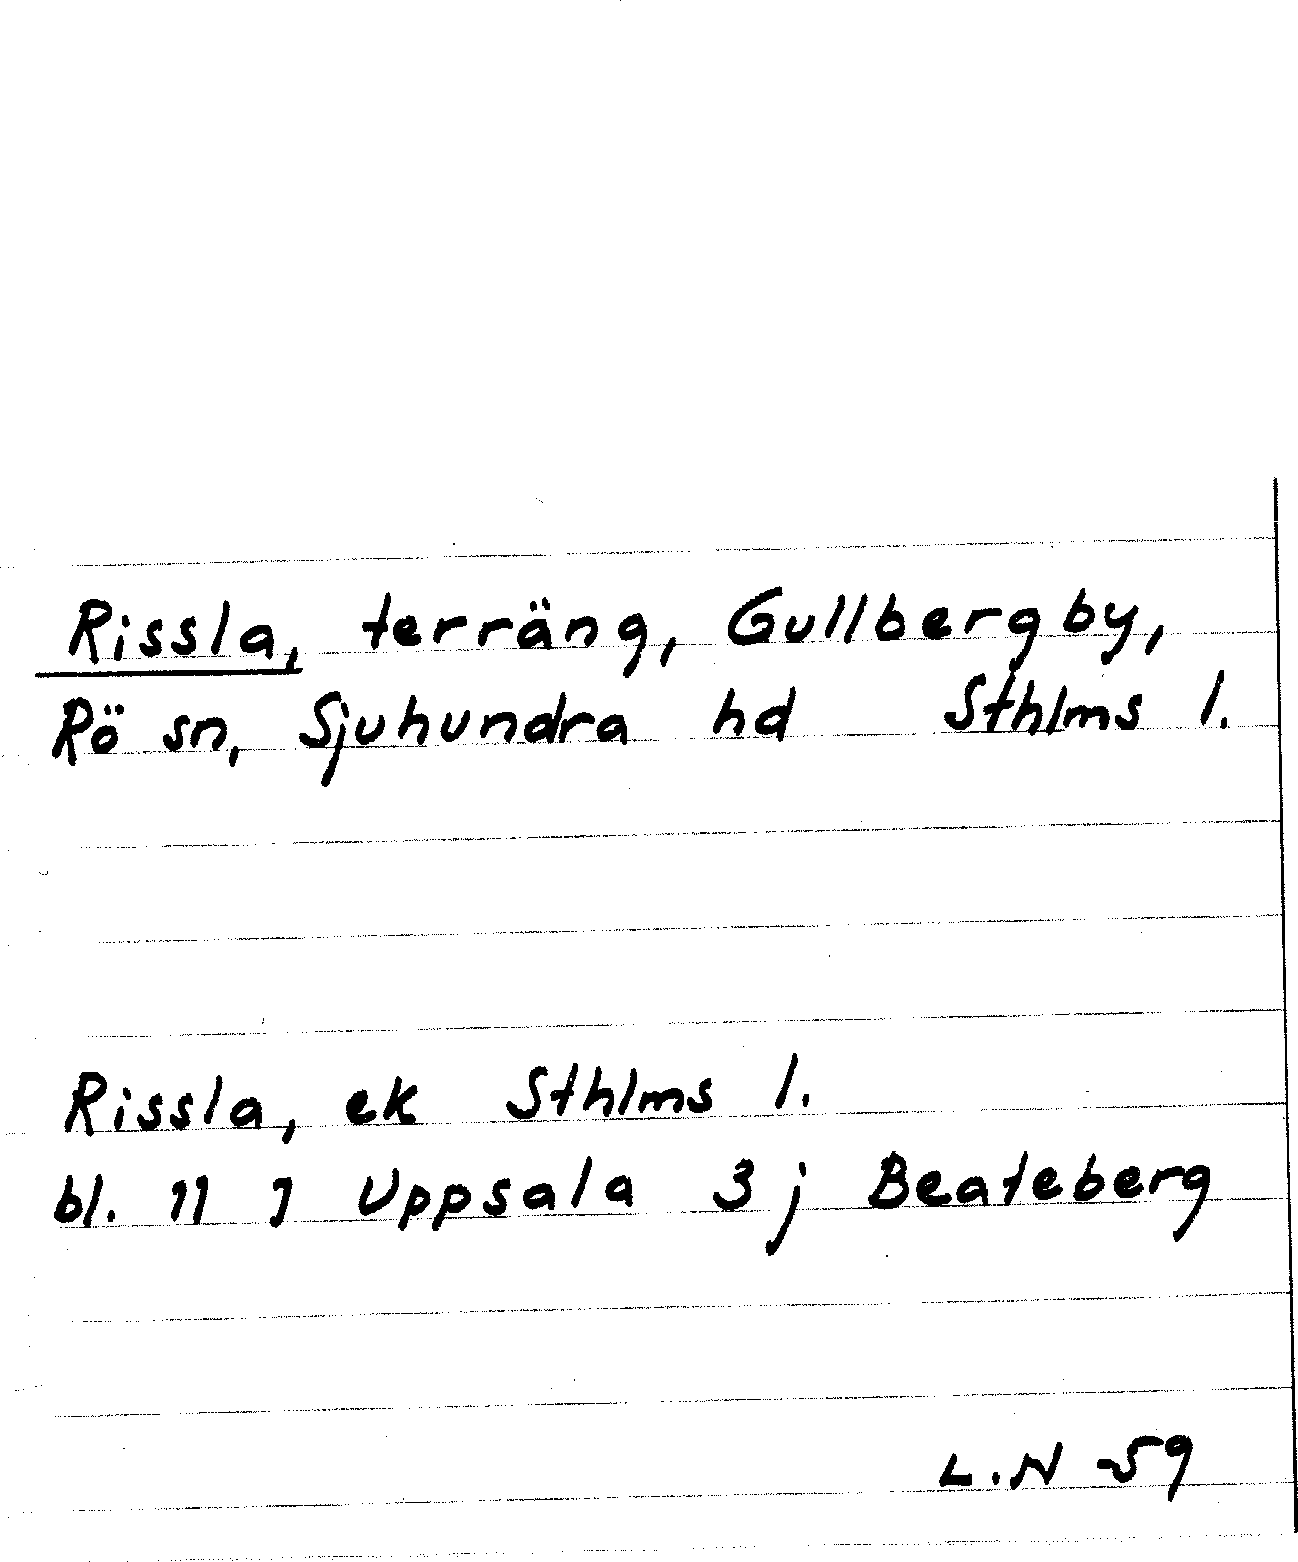 Rissla, terräng, Gullbergby,
Rö sn, Sjuhundra hd Sthlms l.
Rissla, ek Sthlms l.
bl. 11 J Uppsala 3 j Beateberg
L.N -59